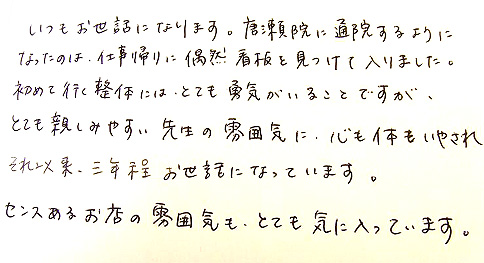 いつもお世話になります。唐瀬院に通院するように
なったのは、仕事帰りに偶然看板を見つけて入りました。
初めて行く整体には、とても勇気がいることですが、
とても親しみやすい先生の雰囲気に、心も体もいやされ
それ以来、三年程お世話になっています。
センスあるお店の雰囲気も、とても気に入っています。